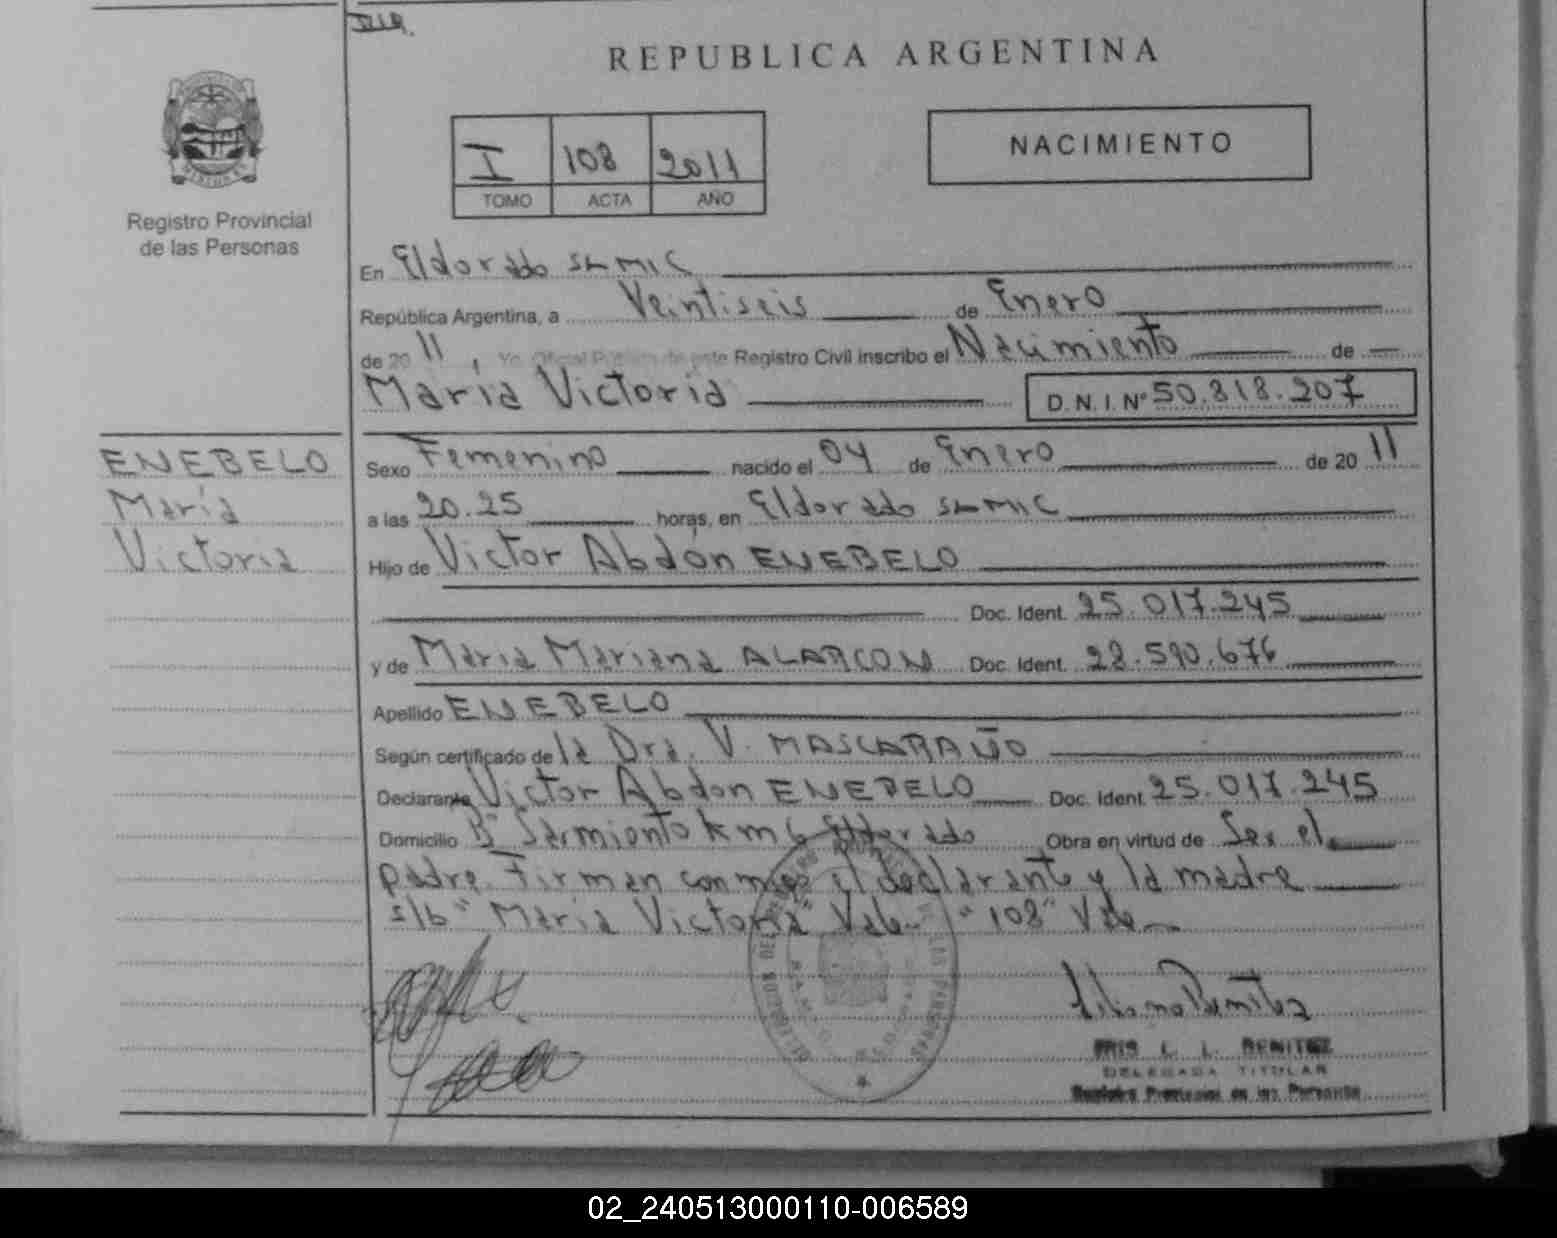 REPUBLICA ARGENTINA
I 108 2011
TOMO ACTA AÑO
NACIMIENTO
Registro Provincial
de las Personas
En Eldorado SAMIC
República Argentina, a Veintiseis de Enero
de 2011, Yo, Oficial Público de este Registro Civil inscribo el Nacimiento de
María Victoria D.N.I. Nº 50.818.207
ENEBELO
María
Victoria
Sexo Femenino nacido el 04 de Enero de 2011
a las 20.25 horas, en Eldorado SAMIC
Hijo de Victor Abdón ENEBELO
Doc. Ident. 25.017.245
y de María Mariana ALARCON Doc. Ident. 22.590.676
Apellido ENEBELO
Según certificado de la Dra. V. MASCARAÑO
Declarante Victor Abdon ENEBELO Doc. Ident. 25.017.245
Domicilio Bº Sarmiento Km 6 Eldorado Obra en virtud de Ser el
padre. Firman conmigo el declarante y la madre
s/b "María Victoria" Vale. "108" Vale
IRIS L. L. BENITEZ
DELEGADA TITULAR
Registro Provincial de las Personas
02_240513000110-006589